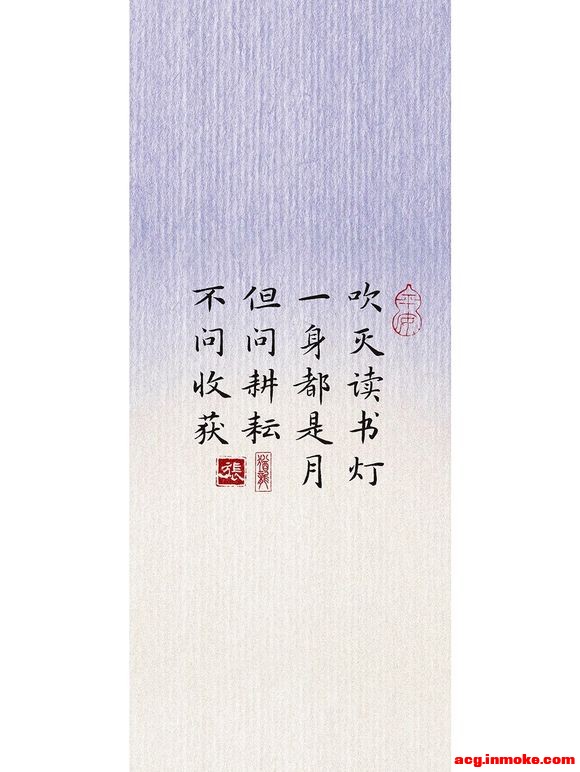 吹灭读书灯
一身都是月
但问耕耘
不问收获
張
acg.inmoke.com